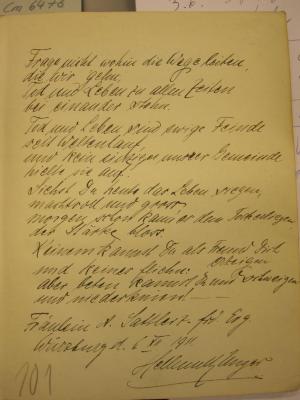 Cm 6478
Frage nicht wohin die Wege leiten,
die wir gehn,
Tod und Leben zu allen Zeiten
bei einander stehn.
Tod und Leben sind ewige Feinde
seit Weltenlauf
und kein einziger unserer Gemeinde
hielte sie auf.
Siehst Du heute das Leben siegen,
machtvoll und gross
morgen schon kann er dem Tod
der Stärke bloss.
Keinem kannst Du als Freund Dich
und keiner fliehn:
aber beten kannst Du und schweigen
und niederknien. — —
Fräulein A. Sattler
Würzburg d. 6 XI 1911
Hellmuth Unger
101